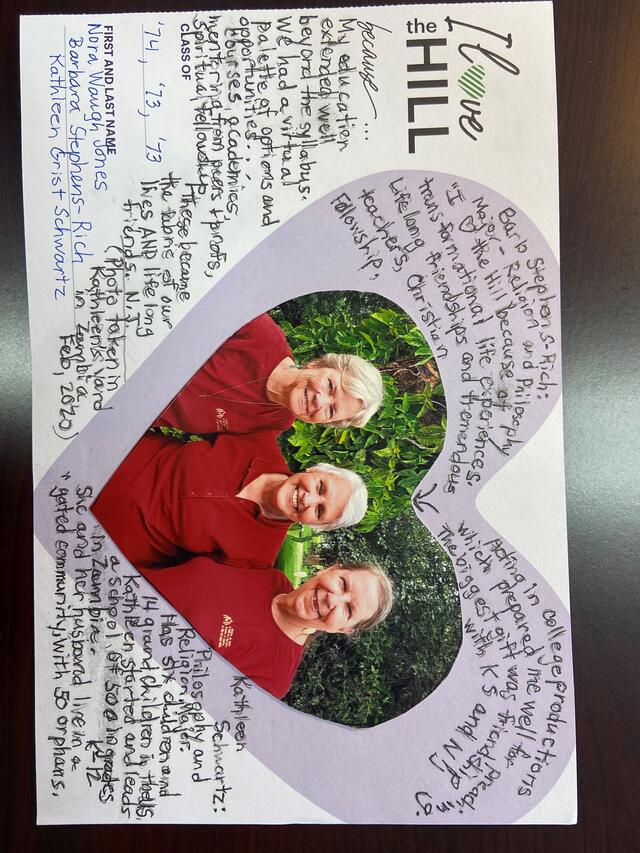 I love
the HILL
because...
My education
extended well
beyond the syllabus.
We had a virtual
palette of options and
opportunities...
courses, academies,
mentoring from peers + profs,
spiritual fellowship
these became
the fabric of our
lives AND lifelong
friends. NJ
(Photo taken in
Kathleen's yard
in Zambia
Feb, 2020)
CLASS OF
'74, '73, '73
FIRST AND LAST NAME
Nora Waugh Jones
Barbara Stephens-Rich
Kathleen Grist Schwartz
Barb Stephens-Rich:
Major - Religion and Philosophy
"I ♡ the Hill because of
transformational life experiences.
Lifelong friendships and tremendous
teachers, Christian
Fellowship,
Acting in college productions
which prepared me well for
preach-
ing.
The biggest gift was friendship
with KS and NJ
Kathleen
Schwartz:
Philosophy and
Religion Major.
Has six children and
14 grandchildren in the US.
Kathleen started and leads
a school of 500 in grades
K-12
in Zambia.
* She and her husband live in a
gated community, with 50 orphans.